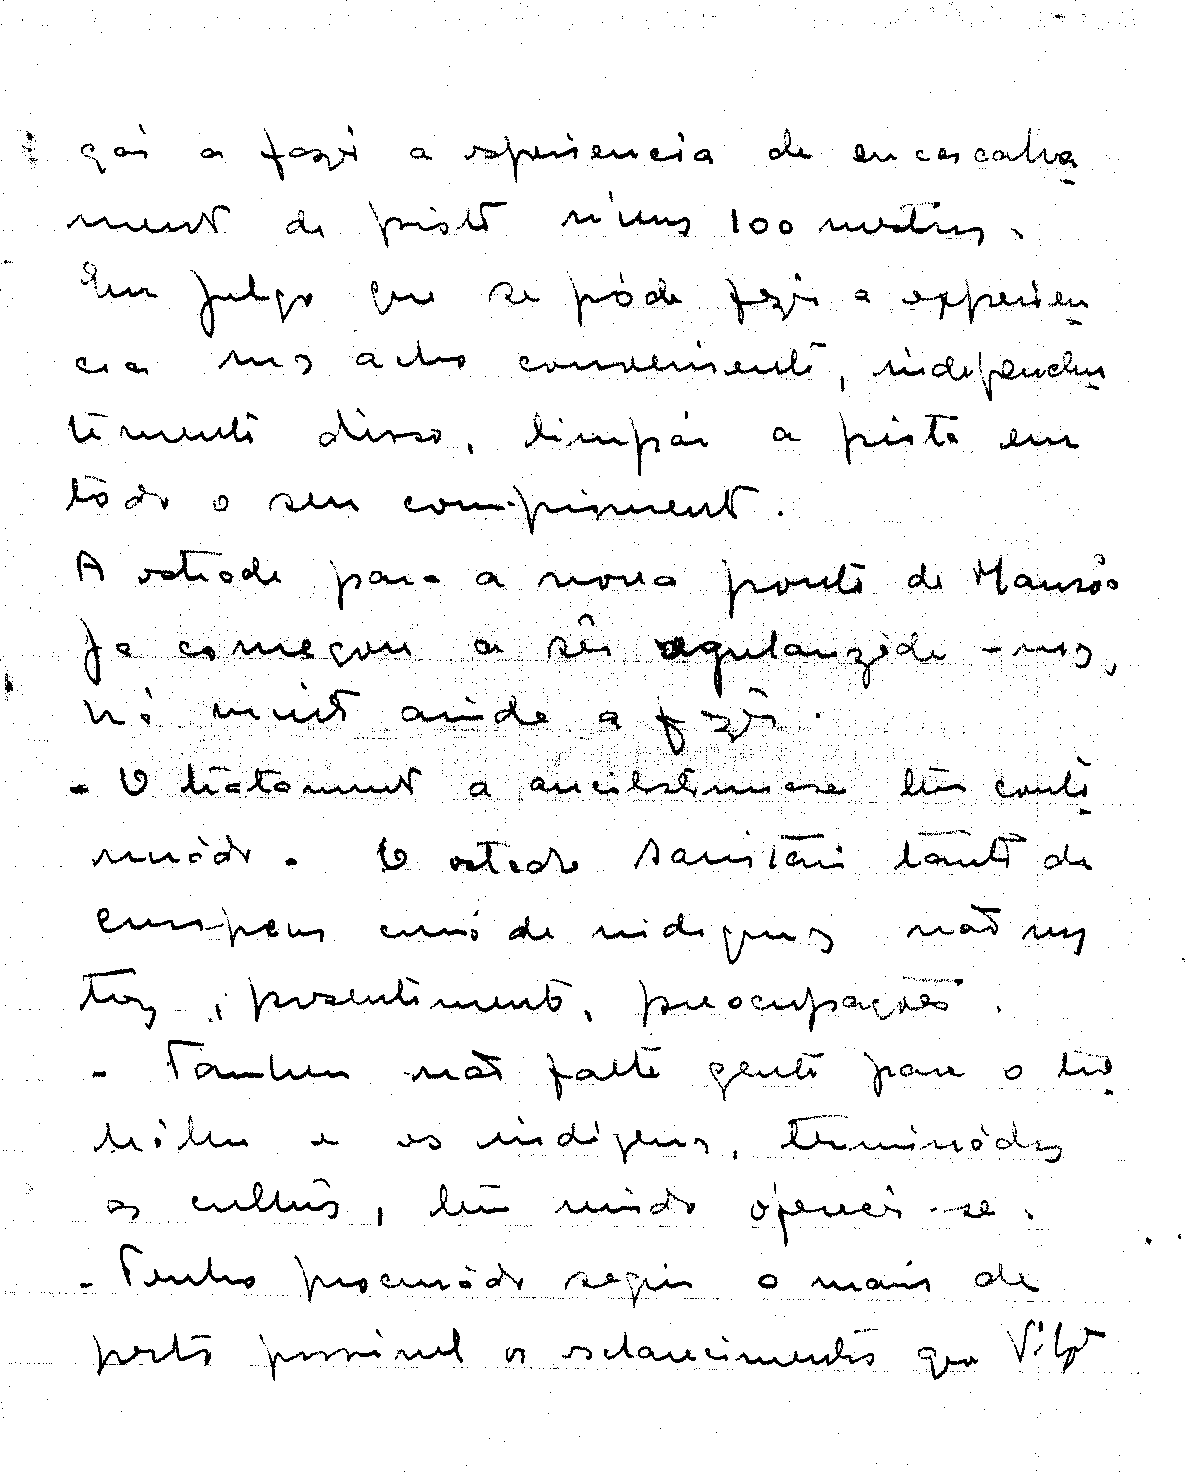 gar a fazer a esperiencia de encascalha-
mento da pista n'uns 100 metros.
Eu julgo que se póde fazer a experien-
cia mas acho conveniente, independen-
temente disso, limpar a pista em
todo o seu comprimento.
A estrada para a nova ponte de Mansôa
já começou a sêr regularizada - mas,
há muito ainda a fazêr.
- O tratamento a ancilostomiase tem conti-
nuado. O estado sanitário tanto de
europeus como de indigenas não nos
traz, presentimente, preocupações.
- Tambem não falta gente para o tra-
balho e os indígenas, terminadas
as culturas, tem vindo oferecer-se.
- Tenho procurado seguir o mais de
perto possivel os esclarecimentos que